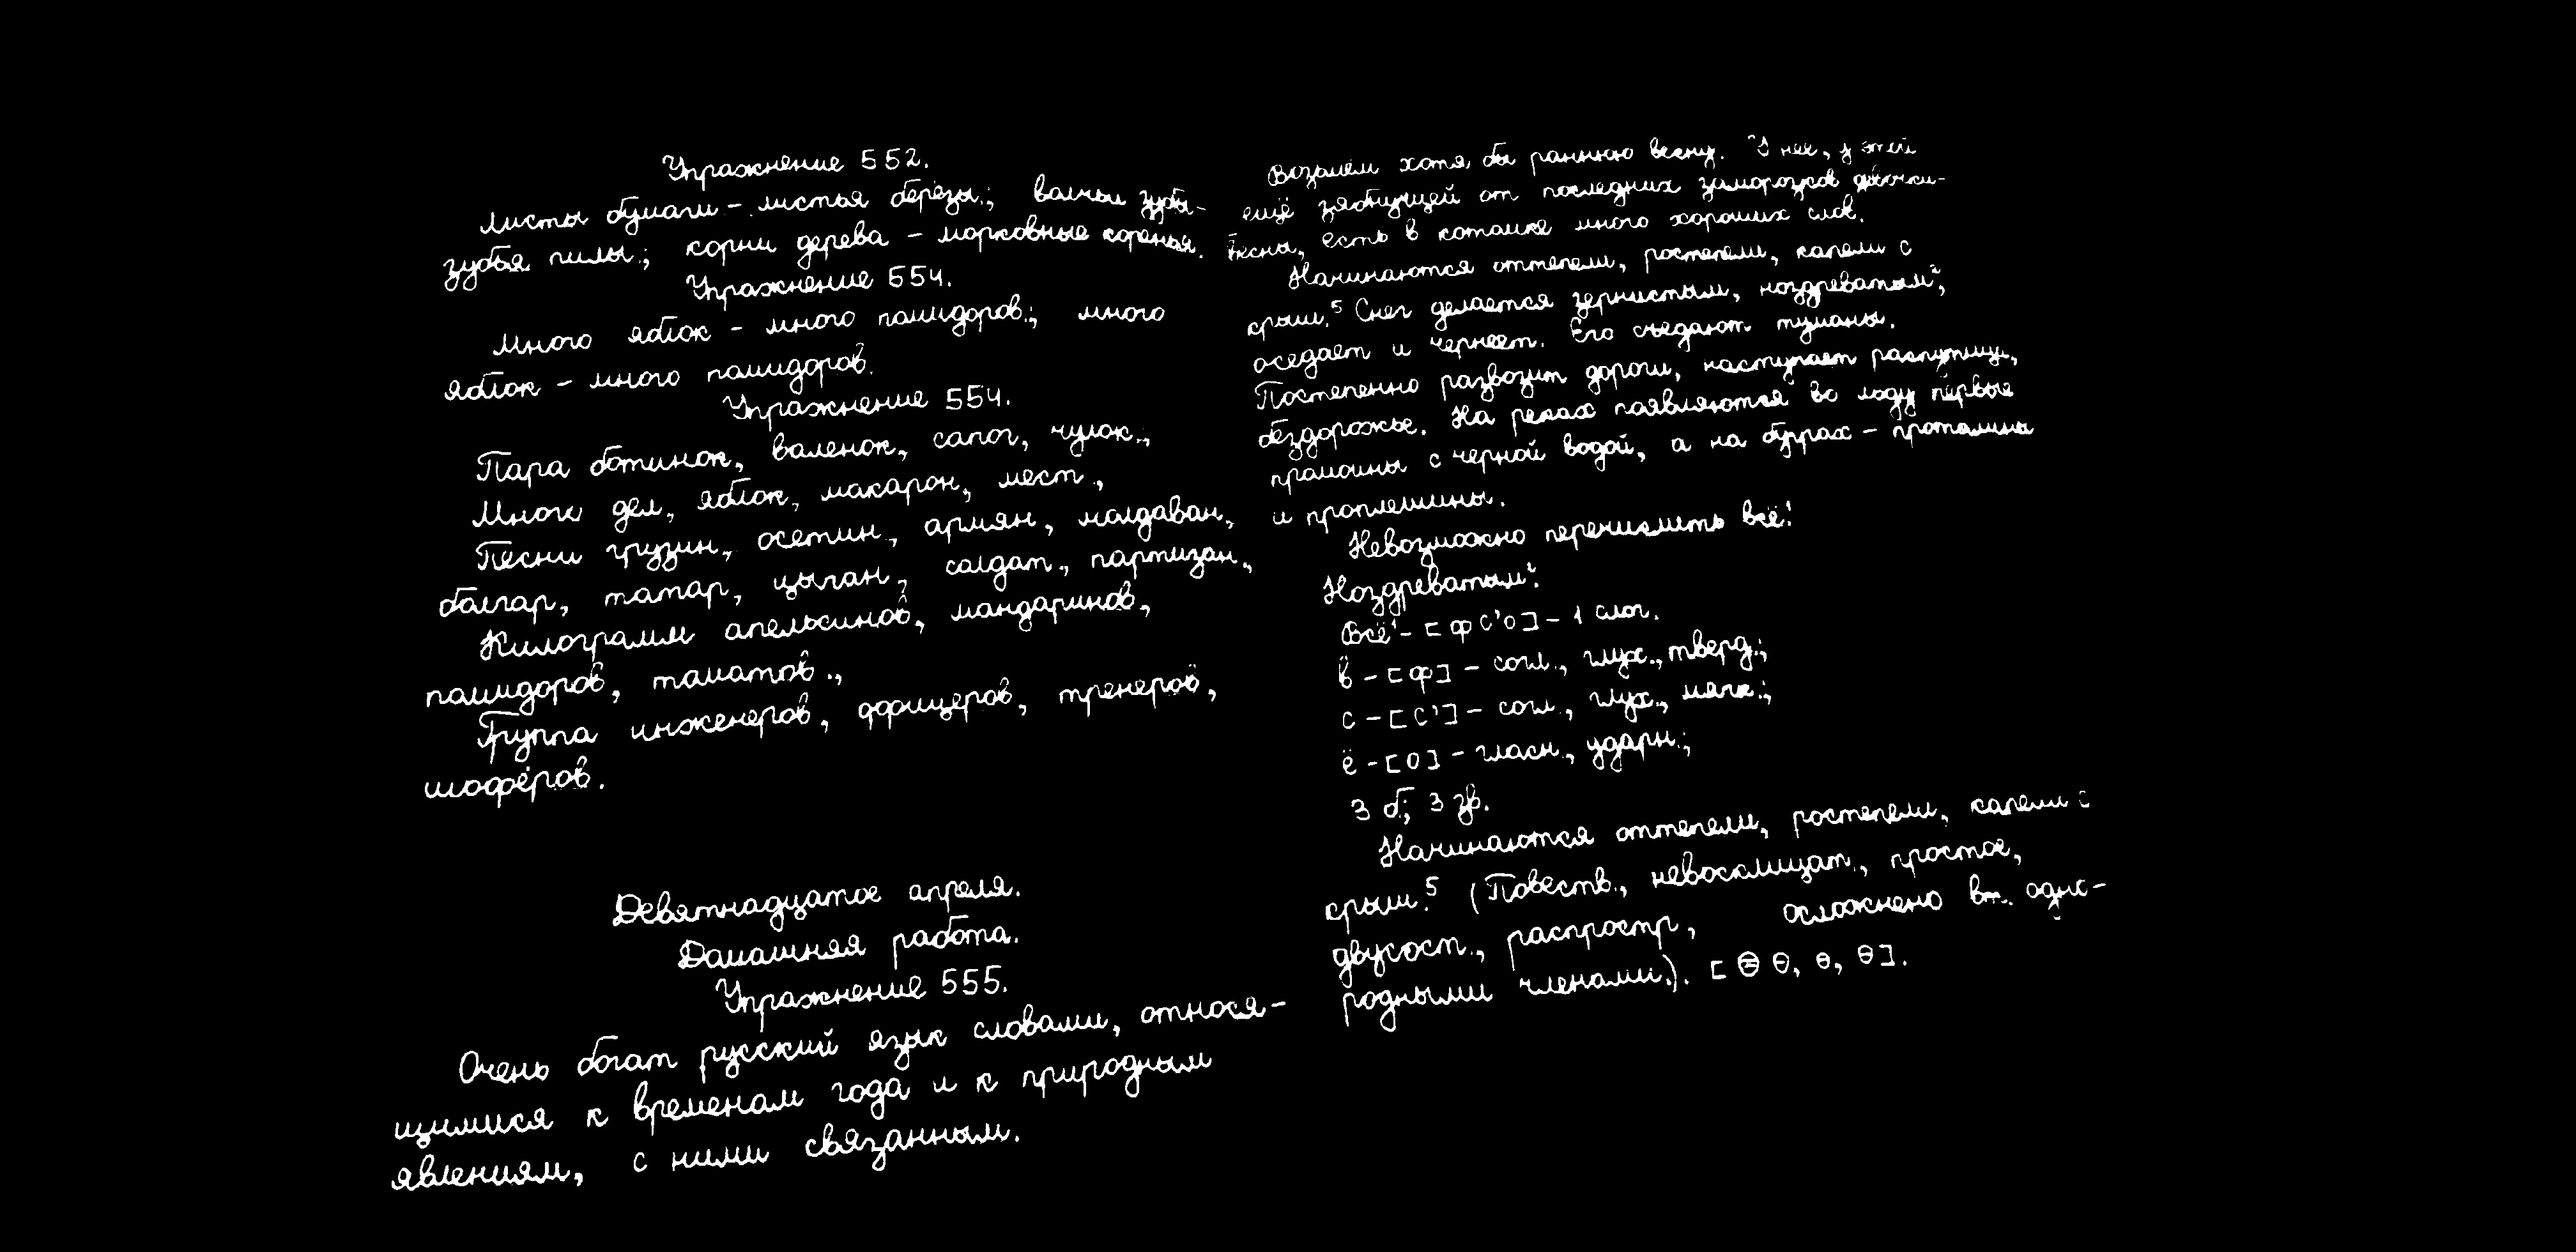 Упражнение 552.
Листы бумаги - листья берёзы.; волчьи зубы-
зубья пилы.; корни дерева - морковные коренья.
Упражнение 554.
Много яблок - много помидоров.; много
яблок - много помидоров.
Упражнение 554.
Пара ботинок, валенок, сапог, чулок.,
Много дел, яблок, макарон, мест.,
Песни грузин, осетин, армян, молдаван,
болгар, татар, цыган, солдат., партизан.,
Килограмм апельсинов, мандаринов,
помидоров, томатов.,
Группа инженеров, офицеров, тренеров,
шофёров.
Девятнадцатое апреля.
Домашняя работа.
Упражнение 555.
Очень богат русский язык словами, относя-
щимися к временам года и к природным
явлениям, с ними связанным.
Возьмём хотя бы раннюю весну. У неё, у этой
ещё зябнущей от последних заморозков девочки-
весны, есть в котомке много хороших слов.
Начинаются оттепели, ростепели, капели с
крыш.⁵ Снег делается зернистым, ноздреватым²,
оседает и чернеет. Его съедают туманы.
Постепенно развозит дороги, наступает распутица,
бездорожье. На реках появляются во льду первые
промоины с черной водой, а на буграх - проталины
и проплешины.
Невозможно перечислить всё!
Ноздреватым².
Всё¹ - [ф с'о] - 1 слог.
в - [ф] - согл., глух., тверд.;
с - [с'] - согл., глух., мягк.;
ё - [о] - гласн., ударн.;
3 б.; 3 зв.
Начинаются оттепели, ростепели, капели с
крыш.⁵ (Повеств., невосклицат., простое,
двусост., распростр, осложнено одно-
родными членами.). [⊖ ⊖, ⊖, ⊖].